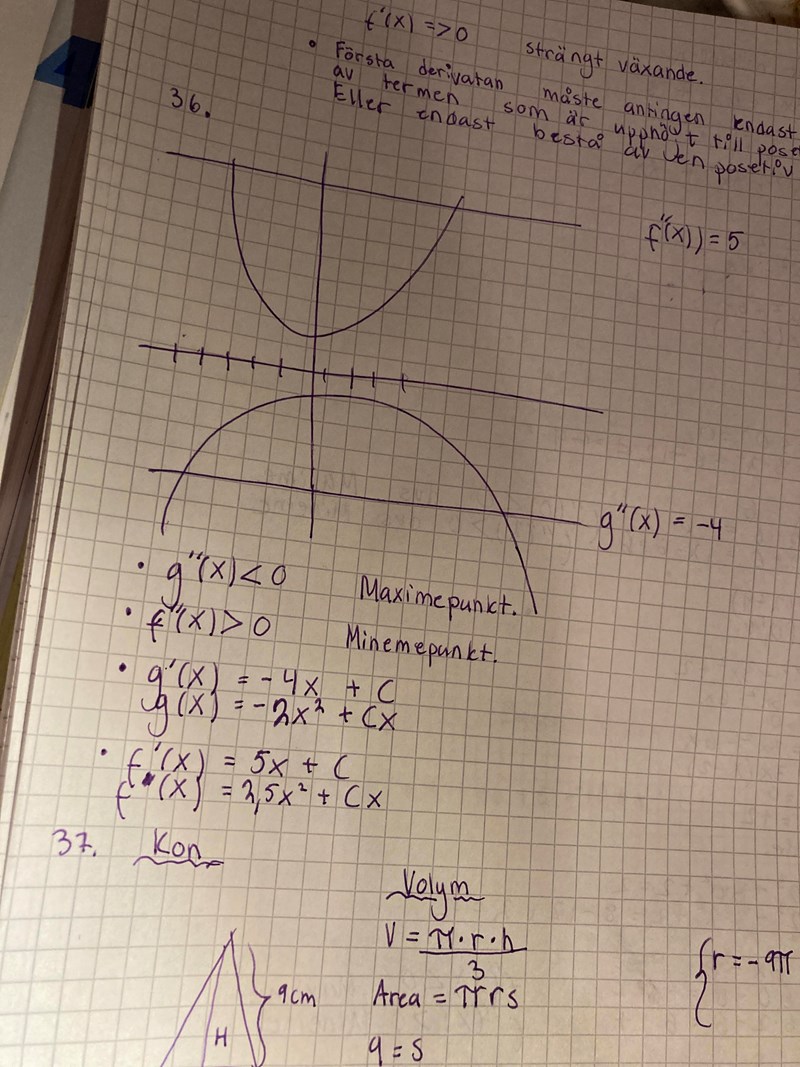 f'(x) => 0 strängt växande.
• Första derivatan måste antingen endast
av termen som är upphöjt till pose
Eller endast bestå av den posetiv
36.
f''(x)) = 5
g''(x) = -4
• g''(x) < 0 Maximepunkt.
• f''(x) > 0 Minemepunkt.
• g'(x) = -4x + C
g(x) = -2x² + Cx
• f'(x) = 5x + C
f(x) = 2,5x² + Cx
37. Kon
Volym
V = π·r·h
3
{r = -9π
9cm
Area = πrs
H
9 = s